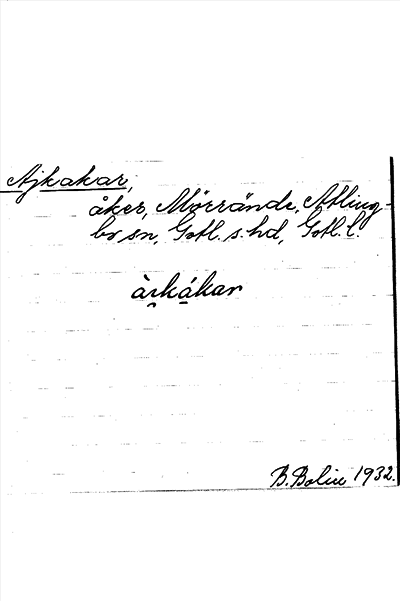 Ajkakar,
åker, Mörrände, Atling-
bo sn, Gotl. s. hd, Gotl. l.
àı̯ká̱kar
B. Bolin 1932.